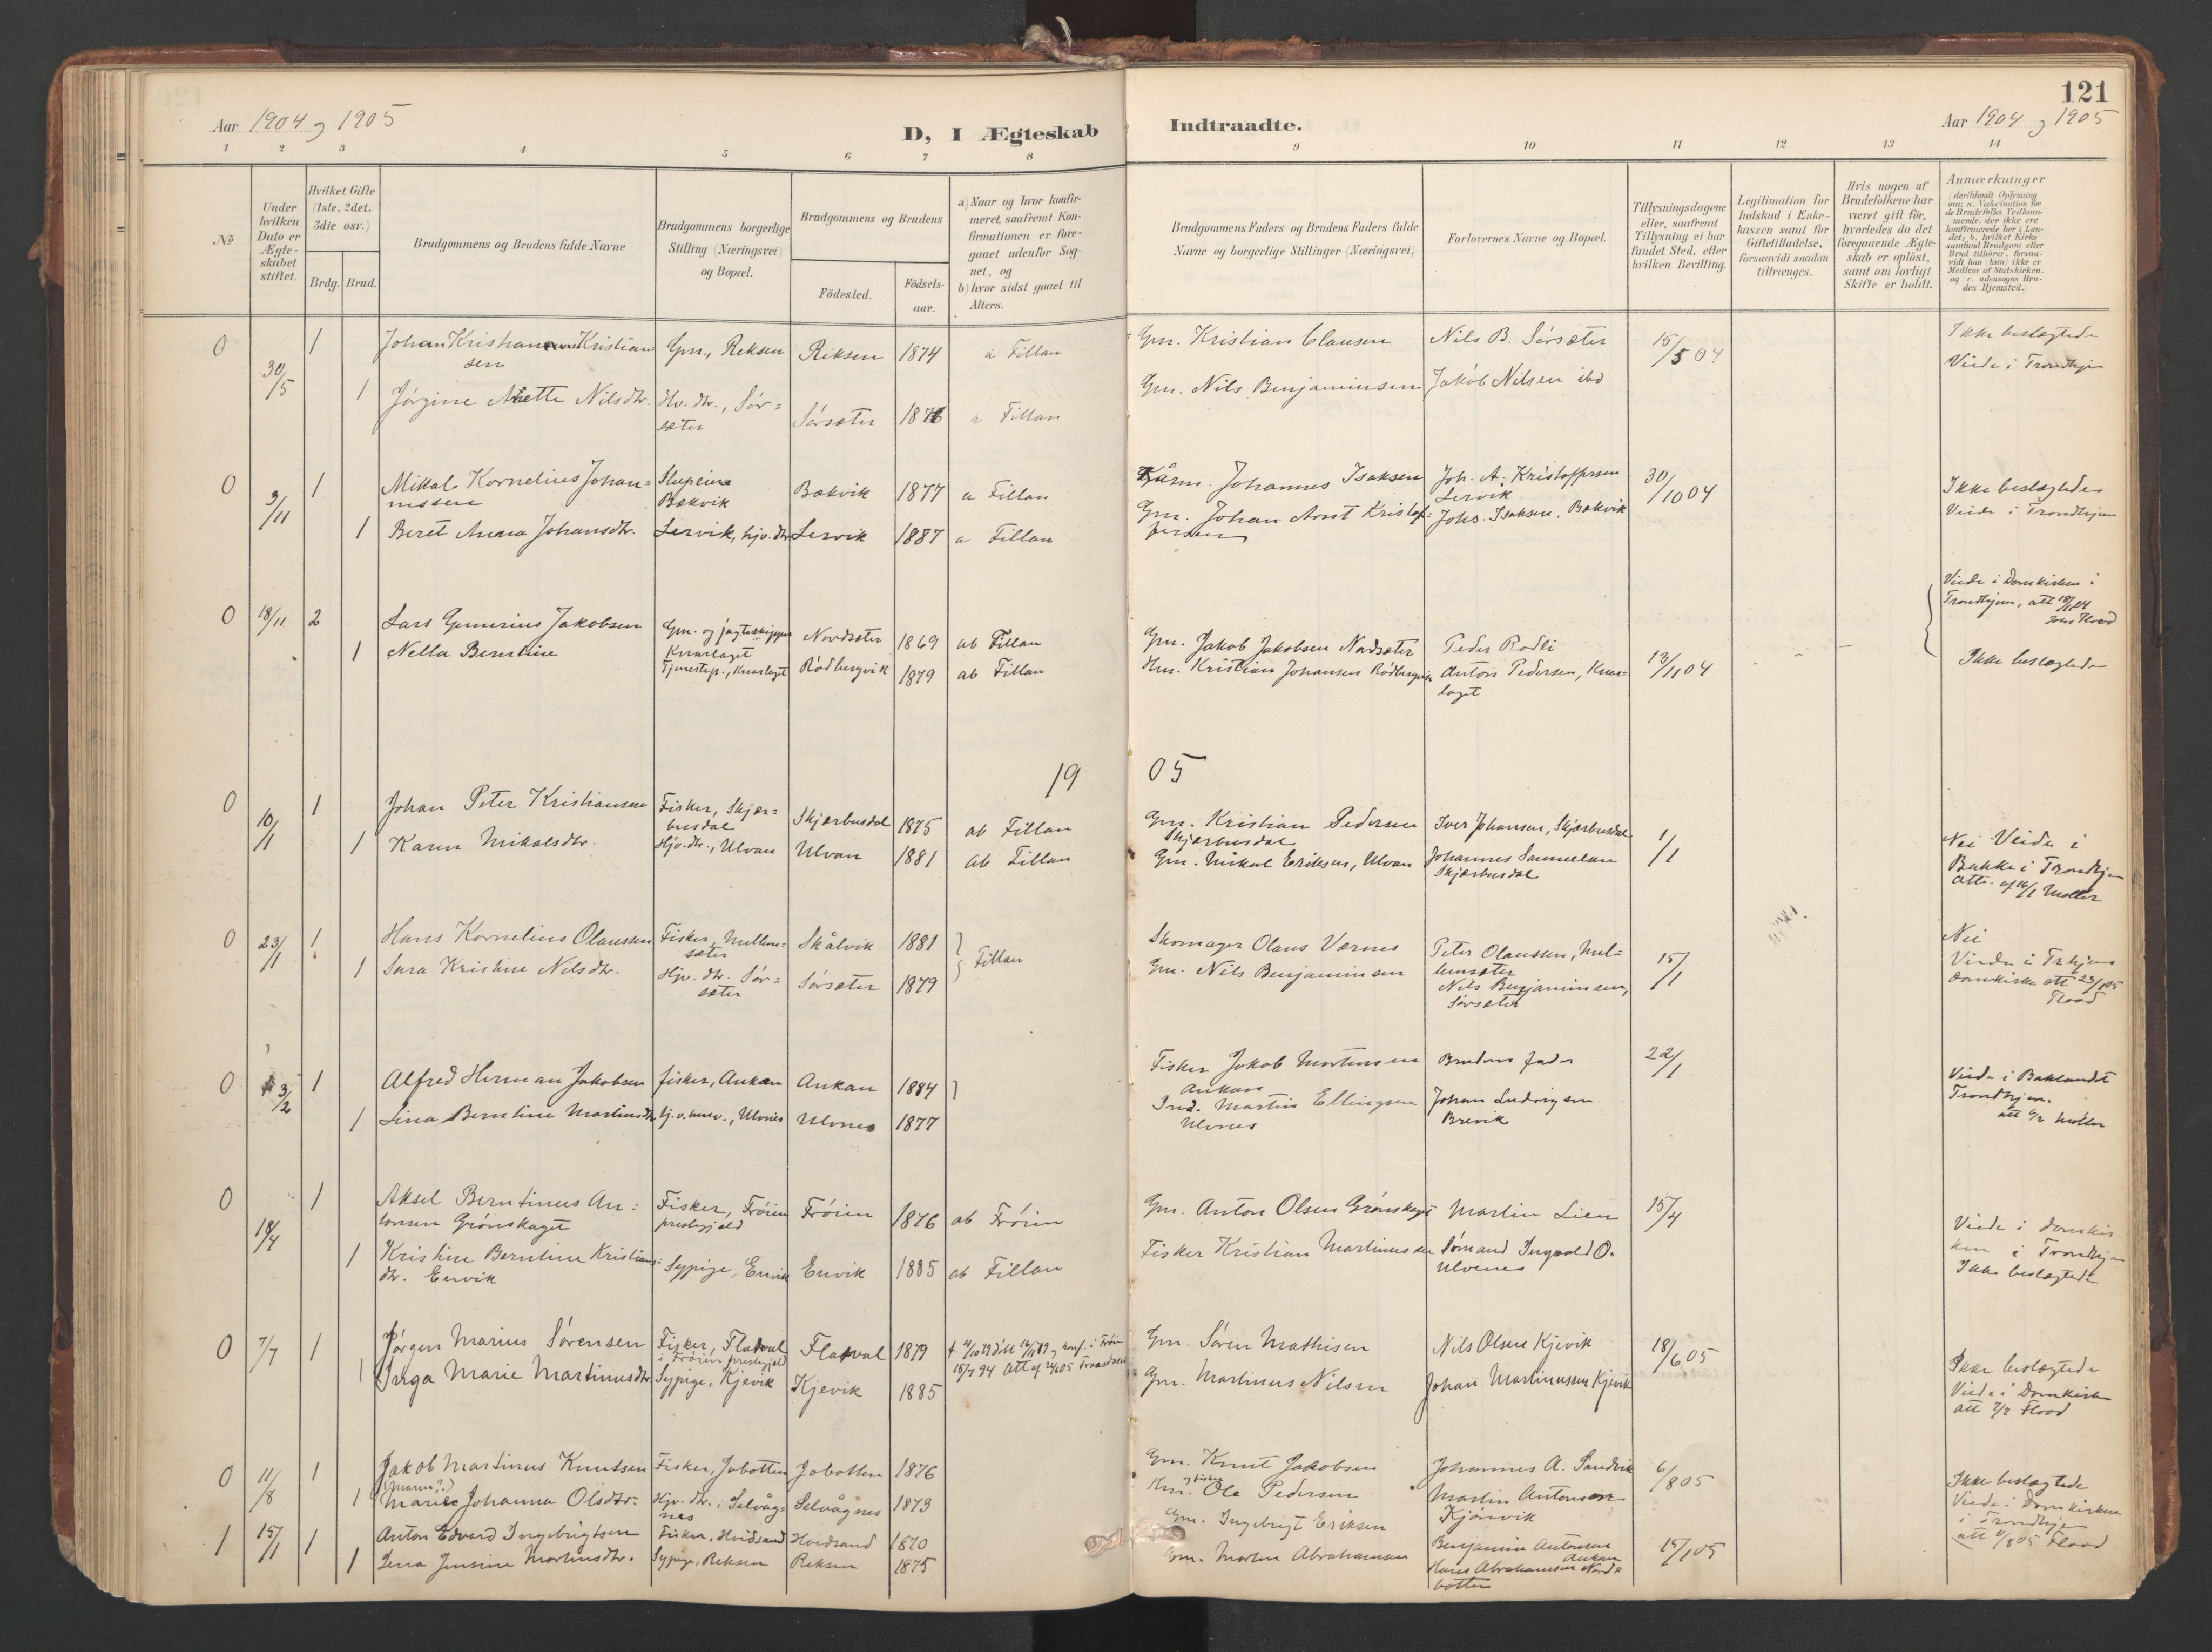 121
Aar 1904 og 1905
D, I Ægteskab
Indtraadte.
Aar 1904 og 1905
1 2 3 4 5 6 7 8 9 10 11 12 13 14
No
Under hvilken Dato er Ægteskabet stiftet.
Hvilket Gifte (1ste, 2det, 3die osv.)
Brdg. Brud.
Brudgommens og Brudens fulde Navne
Brudgommens borgerlige Stilling (Næringsvei) og Bopæl.
Brudgommens og Brudens
Födested.
Födselsaar.
a) Naar og hvor konfirmeret, saafremt Konfirmationen er foregaaet udenfor Sognet, og
b) hvor sidst gaaet til Alters.
Brudgommens Faders og Brudens Faders fulde Navne og borgerlige Stillinger (Næringsvei)
Forlovernes Navne og Bopæl.
Tillysningsdagene eller, saafremt Tillysning ei har fundet Sted, efter hvilken Bevilling.
Legitimation for Indskud i Enkekassen samt for Giftetilladelse, forsaavidt saadan tillrænges.
Hvis nogen af Brudefolkene har været gift för, hvorledes da det foregaaende Ægteskab er oplöst, samt om lovligt Skifte er holdt.
Anmærkninger (deriblandt Oplysning om: a. Vakcination for de Brudefolks Vedkommende, der ikke ere konfirmerede her i Landet; b. hvilket Kirkesamfund Brudgom eller Brud tilhörer, forsaavidt han (hun) ikke er Medlem af Statskirken. og c. udensogns Brudes Hjemsted.)
0 30/5 1 Johan Kristian Kristiansen Gm., Reksen Reksen 1874 a Fillan Gm. Kristian Clausen Nils B. Sørsæter 15/5 04 Ikke beslægtede
1 Jørgine Anette Nilsdtr. Hv. dtr., Sørsæter Sørsæter 1876 a Fillan Gm. Nils Benjaminsen Jakob Nilsen ibd Viede i Trondhjem
0 3/11 1 Mikal Kornelius Johannessen Bækvik Bækvik 1877 a Fillan Kårm. Johannes Isaksen Joh. A. Kristoffersen Lervik 30/10 04 Ikke beslægtede
1 Beret Anna Johansdtr. Lervik, hjv. dtr Lervik 1887 a Fillan Gm. Johan Arnt Kristoffersen Johs. Isaksen, Bækvik Viede i Trondhjem
0 18/11 2 Lars Gunerius Jakobsen Gm. og jagteskipper Knarlaget Nordsæter 1869 ab Fillan Gm. Jakob Jakobsen Nordsæter Peder Rodli 13/11 04 Viede i Domkirken i Trondhjem, att 18/11 04 Johs Flood
1 Nella Berntine Tjenestep., Knarlaget Rødbergvik 1879 ab Fillan Hm. Kristian Johansen Rødbergvik Anton Pedersen, Knarlaget Ikke beslægtede
19 05
0 10/1 1 Johan Peter Kristiansen Fisker, Skjærbusdal Skjærbusdal 1875 ab Fillan Gm. Kristian Pedersen Skjærbusdal Iver Johansen, Skjærbusdal 1/1 Nei Viede i Bakke i Trondhjem
1 Karen Mikalsdtr. Hjv. dtr., Ulvan Ulvan 1881 ab Fillan Gm. Mikal Eriksen, Ulvan Johannes Samuelsen Skjærbusdal att. af Møller
0 23/1 1 Hans Kornelius Olaussen Fisker, Mellemsæter Skålvik 1881 Fillan Skomager Olaus Værnes Peter Olaussen, Mellemsæter 15/1 Nei
1 Sara Kristine Nilsdtr. Hjv. dtr. Sørsæter Sørsæter 1879 Gm. Nils Benjaminsen Nils Benjaminsen, Sørsæter Viede i Trhjems Domkirke att 23/1 05 Flood
0 3/2 1 Alfred Herman Jakobsen fisker, Aukan Aukan 1884 Fisker Jakob Mortensen Aukan Brudens fader 22/1 Viede i Baklandet Trondhjem.
1 Lina Berntine Martinsdtr Ulvnes Ulvnes 1877 Ind. Martin Ellingsen Ulvnes Johan Ludvigsen Brevik att 6/2 Møller
0 18/4 1 Aksel Berntinus Antonsen Grønskaget Fisker, Frøien prestgjeld Frøien 1876 ab Frøien Gm. Anton Olsen Grønskaget Martin Lien 15/4 Viede i Domkirken i Trondhjem
1 Kristine Berntine Kristiansdtr. Envik Sypige, Envik Envik 1885 ab Fillan Fisker Kristian Martinussen Sømand Ingvald O. Ulvenes Ikke beslægtede
0 7/7 1 Jørgen Marius Sørensen Fisker, Flatval i Frøien prestgjeld Flatval 1879 Gm. Søren Mathisen Nils Olsen Kjevik 18/6 05 Ikke beslægtede
1 Inga Marie Martinusdtr Sypige, Kjevik Kjevik 1885 Gm. Martinus Nilsen Johan Martinussen Kjevik Viede i Domkirken att 7/7 Flood
0 11/8 1 Jakob Martinus Knutsen Fisker, Jøbotten Jøbotten 1876 Gm. Knut Jakobsen Johannes A. Sandvik 6/8 05 Ikke beslægtede
1 Marie Johanna Olsdtr. Hjv. dtr., Selvågnes Selvågnes 1873 Hm. og fisker Ole Pedersen Martin Antonsen Kjørvik Viede i Domkirken i Trondhjem att 11/8 05 Flood
1 15/1 1 Anton Edvard Ingebrigtsen Fisker, Hvidsand Hvidsand 1870 Gm. Ingebrigt Eriksen Benjamin Antonsen Aukan 15/1 05
1 Lena Jensine Martinsdtr. Sypige, Reksen Reksen 1875 Gm. Martin Abrahamsen Hans Abrahamsen Nordbotten